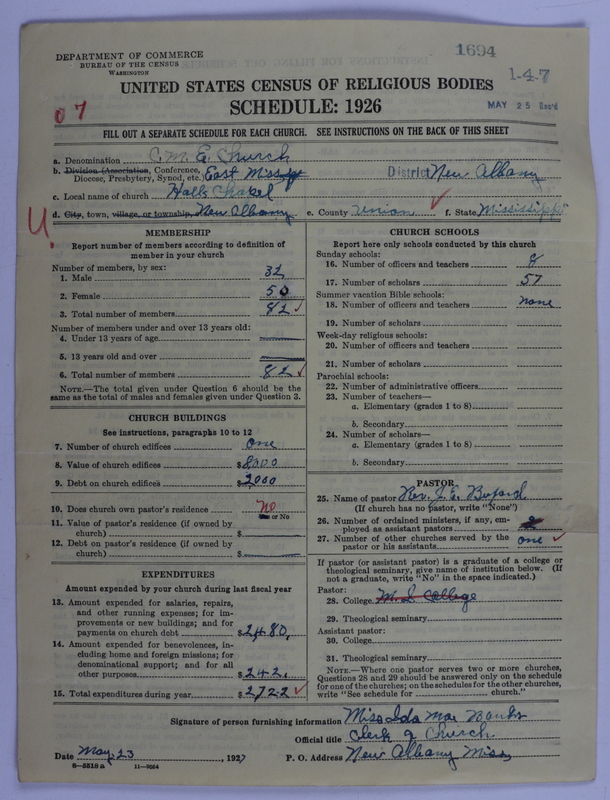 DEPARTMENT OF COMMERCE
BUREAU OF THE CENSUS
WASHINGTON
1694
1-4-7
UNITED STATES CENSUS OF RELIGIOUS BODIES
MAY 25 Rec'd
07
SCHEDULE: 1926
FILL OUT A SEPARATE SCHEDULE FOR EACH CHURCH. SEE INSTRUCTIONS ON THE BACK OF THIS SHEET
a. Denomination C. M. E. Church
b. Division (Association, Conference, Diocese, Presbytery, Synod, etc.) East Miss District New Albany
c. Local name of church Halls Chapel
U.
d. City, town, village, or township, New Albany e. County Union f. State Mississippi
MEMBERSHIP
Report number of members according to definition of
member in your church
Number of members, by sex:
1. Male 32
2. Female 50
3. Total number of members 82 ✓
Number of members under and over 13 years old:
4. Under 13 years of age
5. 13 years old and over
6. Total number of members 82 ✓
NOTE.—The total given under Question 6 should be the
same as the total of males and females given under Question 3.
CHURCH BUILDINGS
See instructions, paragraphs 10 to 12
7. Number of church edifices one
8. Value of church edifices $8000
9. Debt on church edifices $2000
10. Does church own pastor's residence No
Yes or No
11. Value of pastor's residence (if owned by
church) $
12. Debt on pastor's residence (if owned by
church) $
EXPENDITURES
Amount expended by your church during last fiscal year
13. Amount expended for salaries, repairs,
and other running expenses; for im-
provements or new buildings; and for
payments on church debt $2480.
14. Amount expended for benevolences, in-
cluding home and foreign missions; for
denominational support; and for all
other purposes $242.
15. Total expenditures during year $2722 ✓
CHURCH SCHOOLS
Report here only schools conducted by this church
Sunday schools:
16. Number of officers and teachers 8
17. Number of scholars 57
Summer vacation Bible schools:
18. Number of officers and teachers none
19. Number of scholars
Week-day religious schools:
20. Number of officers and teachers
21. Number of scholars
Parochial schools:
22. Number of administrative officers
23. Number of teachers—
a. Elementary (grades 1 to 8)
b. Secondary
24. Number of scholars—
a. Elementary (grades 1 to 8)
b. Secondary
PASTOR
25. Name of pastor Rev. J. E. Buford
(If church has no pastor, write "None")
26. Number of ordained ministers, if any, em-
ployed as assistant pastors
27. Number of other churches served by the
pastor or his assistants one ✓
If pastor (or assistant pastor) is a graduate of a college or
theological seminary, give name of institution below. (If
not a graduate, write "No" in the space indicated.)
Pastor:
28. College M. I. College
29. Theological seminary
Assistant pastor:
30. College
31. Theological seminary
NOTE.—Where one pastor serves two or more churches,
Questions 28 and 29 should be answered only on the schedule
for one of the churches; on the schedules for the other churches,
write "See schedule for church."
Signature of person furnishing information Miss Ida Mae Banks
Official title Clerk of Church
Date May 23, 1927 P. O. Address New Albany Miss
8—5318 a 11—9054